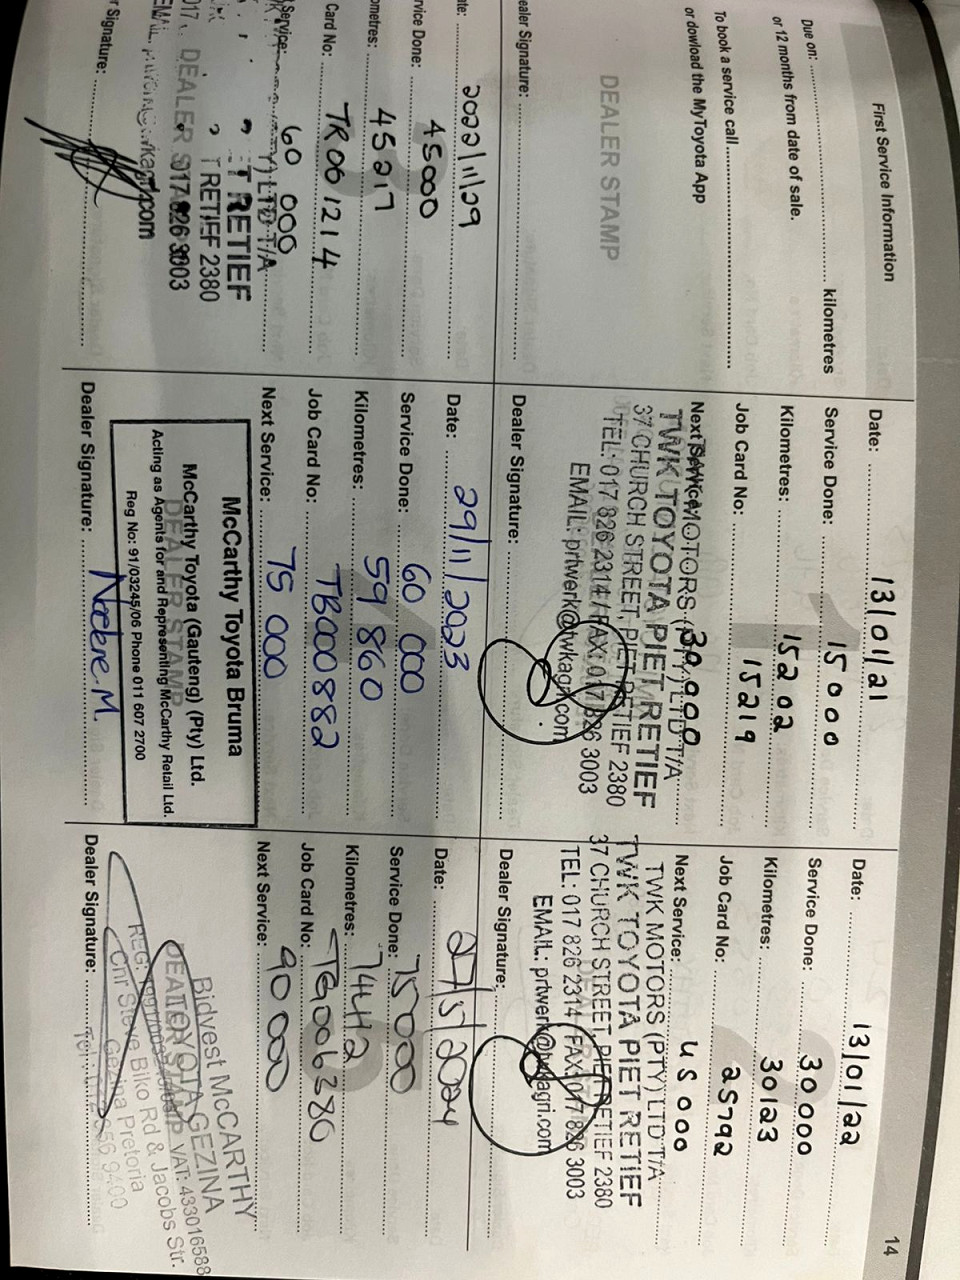 14
First Service Information
Due on: kilometres
or 12 months from date of sale.
To book a service call
or dowload the MyToyota App
DEALER STAMP
ealer Signature:
Date: 13/01/21
Service Done: 15000
Kilometres: 15202
Job Card No: 15219
Next Service: 30,000
TWK MOTORS (PTY) LTD T/A
TWK TOYOTA PIET RETIEF
37 CHURCH STREET, PIET RETIEF 2380
TEL: 017 826 2314 / FAX: 017 826 3003
EMAIL: prtwerk@twkagri.com
Dealer Signature:
Date: 13/01/22
Service Done: 30000
Kilometres: 30123
Job Card No: 25792
Next Service: 45000
TWK MOTORS (PTY) LTD T/A
TWK TOYOTA PIET RETIEF
37 CHURCH STREET, PIET RETIEF 2380
TEL: 017 826 2314 / FAX: 017 826 3003
EMAIL: prtwerk@twkagri.com
Dealer Signature:
ate: 2022/11/29
rvice Done: 45000
ometres: 45217
Card No: TR061214
Service: 60 000
(PTY) LTD T/A
ET RETIEF
T RETIEF 2380
DEALER S 017 826 3003
EMAIL: wkagri.com
r Signature:
Date: 29/11/2023
Service Done: 60 000
Kilometres: 59 860
Job Card No: TB000882
Next Service: 75 000
McCarthy Toyota Bruma
McCarthy Toyota (Gauteng) (Pty) Ltd.
DEALER STAMP
Acting as Agents for and Representing McCarthy Retail Ltd.
Reg No: 91/03245/06 Phone 011 607 2700
Dealer Signature:
Date: 27/5/2024
Service Done: 75000
Kilometres: 74412
Job Card No: TG006380
Next Service: 90 000
Bidvest McCARTHY
TOYOTA GEZINA
VAT: 433016588
Cnr Steve Biko Rd & Jacobs Str.
Gezina Pretoria
Dealer Signature: